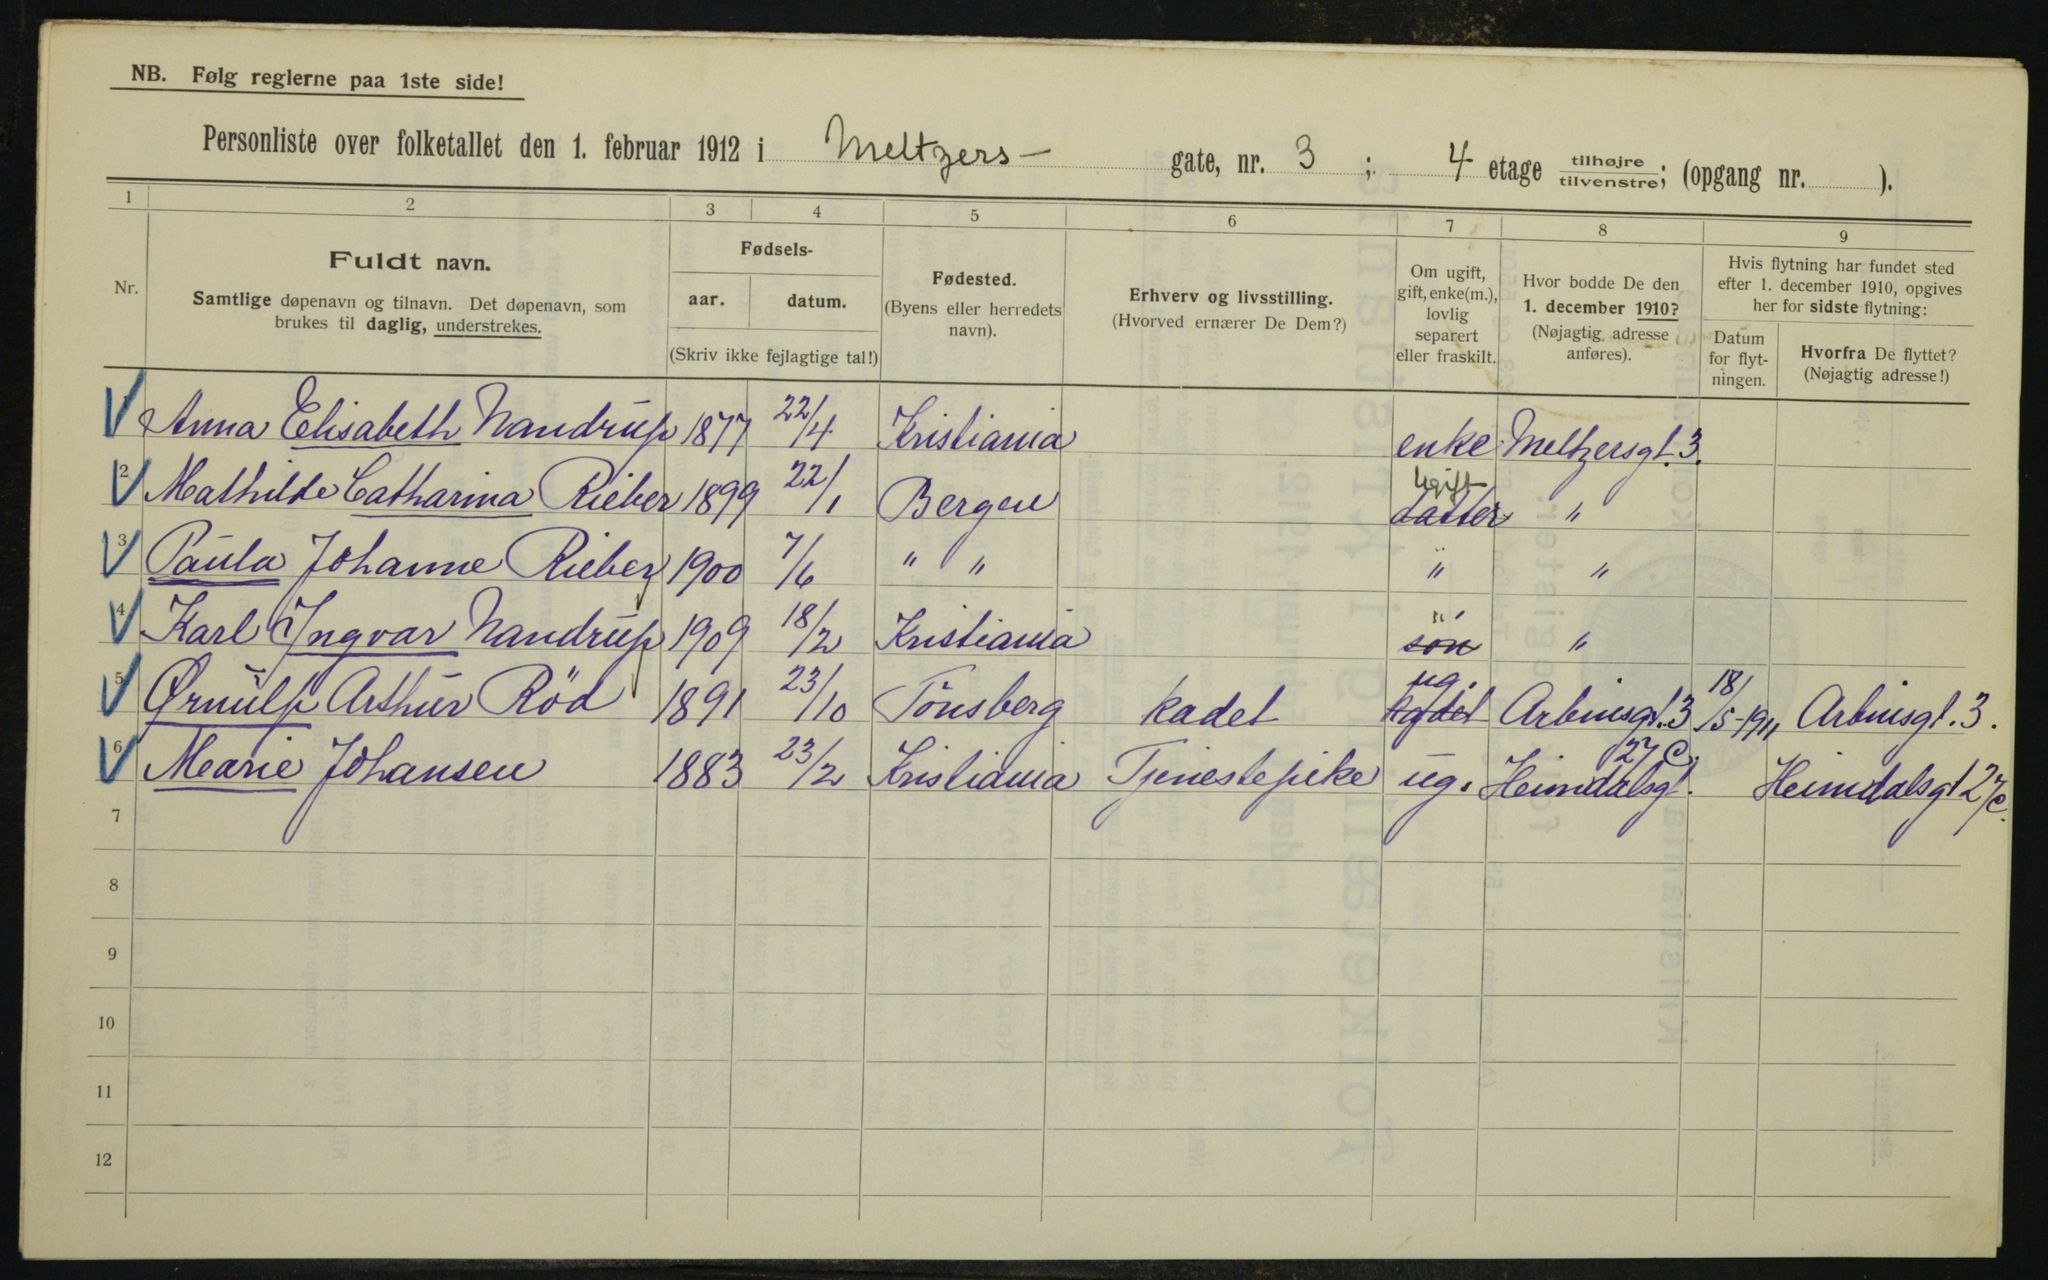 NB. Følg reglerne paa 1ste side!
Personliste over folketallet den 1. februar 1912 i Meltzers- gate, nr. 3 ; 4 etage tilhøjre/tilvenstre; (opgang nr. ).
1 2 3 4 5 6 7 8 9
Nr.
Fuldt navn.
Samtlige døpenavn og tilnavn. Det døpenavn, som
brukes til daglig, understrekes.
Fødsels-
aar. datum.
(Skriv ikke fejlagtige tal!)
Fødested.
(Byens eller herredets
navn).
Erhverv og livsstilling.
(Hvorved ernærer De Dem?)
Om ugift,
gift, enke(m.),
lovlig
separert
eller fraskilt.
Hvor bodde De den
1. december 1910?
(Nøjagtig adresse
anføres).
Hvis flytning har fundet sted
efter 1. december 1910, opgives
her for sidste flytning:
Datum
for flyt-
ningen.
Hvorfra De flyttet?
(Nøjagtig adresse!)
Anna Elisabeth Nandrup 1877 22/4 Kristiania enke Meltzersgt. 3.
2 Mathilde Catharina Rieber 1899 22/1 Bergen datter ugift "
3 Paula Johanne Rieber 1900 7/6 " " " "
4 Karl Yngvar Nandrup 1909 18/2 Kristiania søn " "
5 Ørnulf Arthur Röd 1891 23/10 Tönsberg kadet kadet ug. Arbinsgt. 3 18/5-1911 Arbinsgt. 3.
6 Marie Johansen 1883 23/2 Kristiania Tjenestepike ug. Heimdalsgt. 27C. Heimdalsgt 27c.
7
8
9
10
11
12